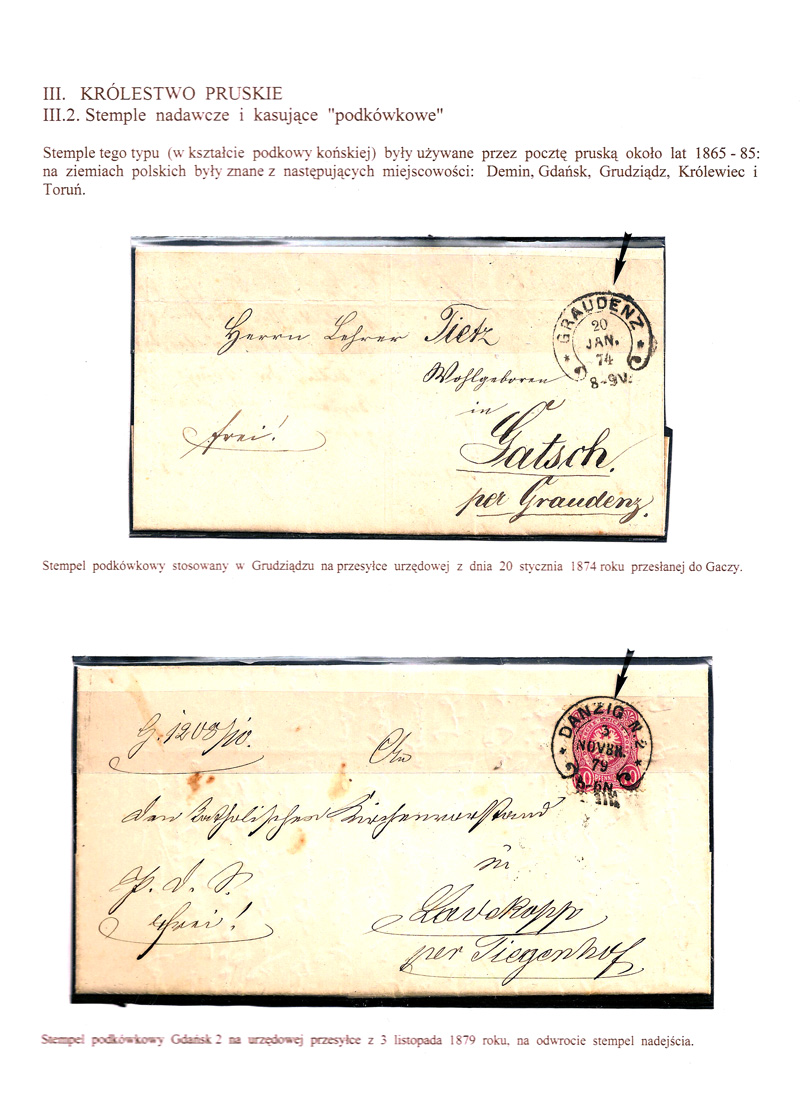 III. KRÓLESTWO PRUSKIE
III.2. Stemple nadawcze i kasujące "podkówkowe"
Stemple tego typu (w kształcie podkowy końskiej) były używane przez pocztę pruską około lat 1865 - 85:
na ziemiach polskich były znane z następujących miejscowości: Demin, Gdańsk, Grudziądz, Królewiec i
Toruń.
GRAUDENZ
20
JAN.
74
8-9V.
Herrn Lehrer Tietz
Wohlgeboren
in
frei!
Gatsch.
per Graudenz.
Stempel podkówkowy stosowany w Grudziądzu na przesyłce urzędowej z dnia 20 stycznia 1874 roku przesłanej do Gaczy.
DANZIG N.2
3
NOVBR.
79
6-6N.
10 PFENNIG 10
G. 1203/10.
An
den Katholischen Kirchenvorstand
in
P. d. S.
frei!
Ladekopp
per Tiegenhof
Stempel podkówkowy Gdańsk 2 na urzędowej przesyłce z 3 listopada 1879 roku, na odwrocie stempel nadejścia.